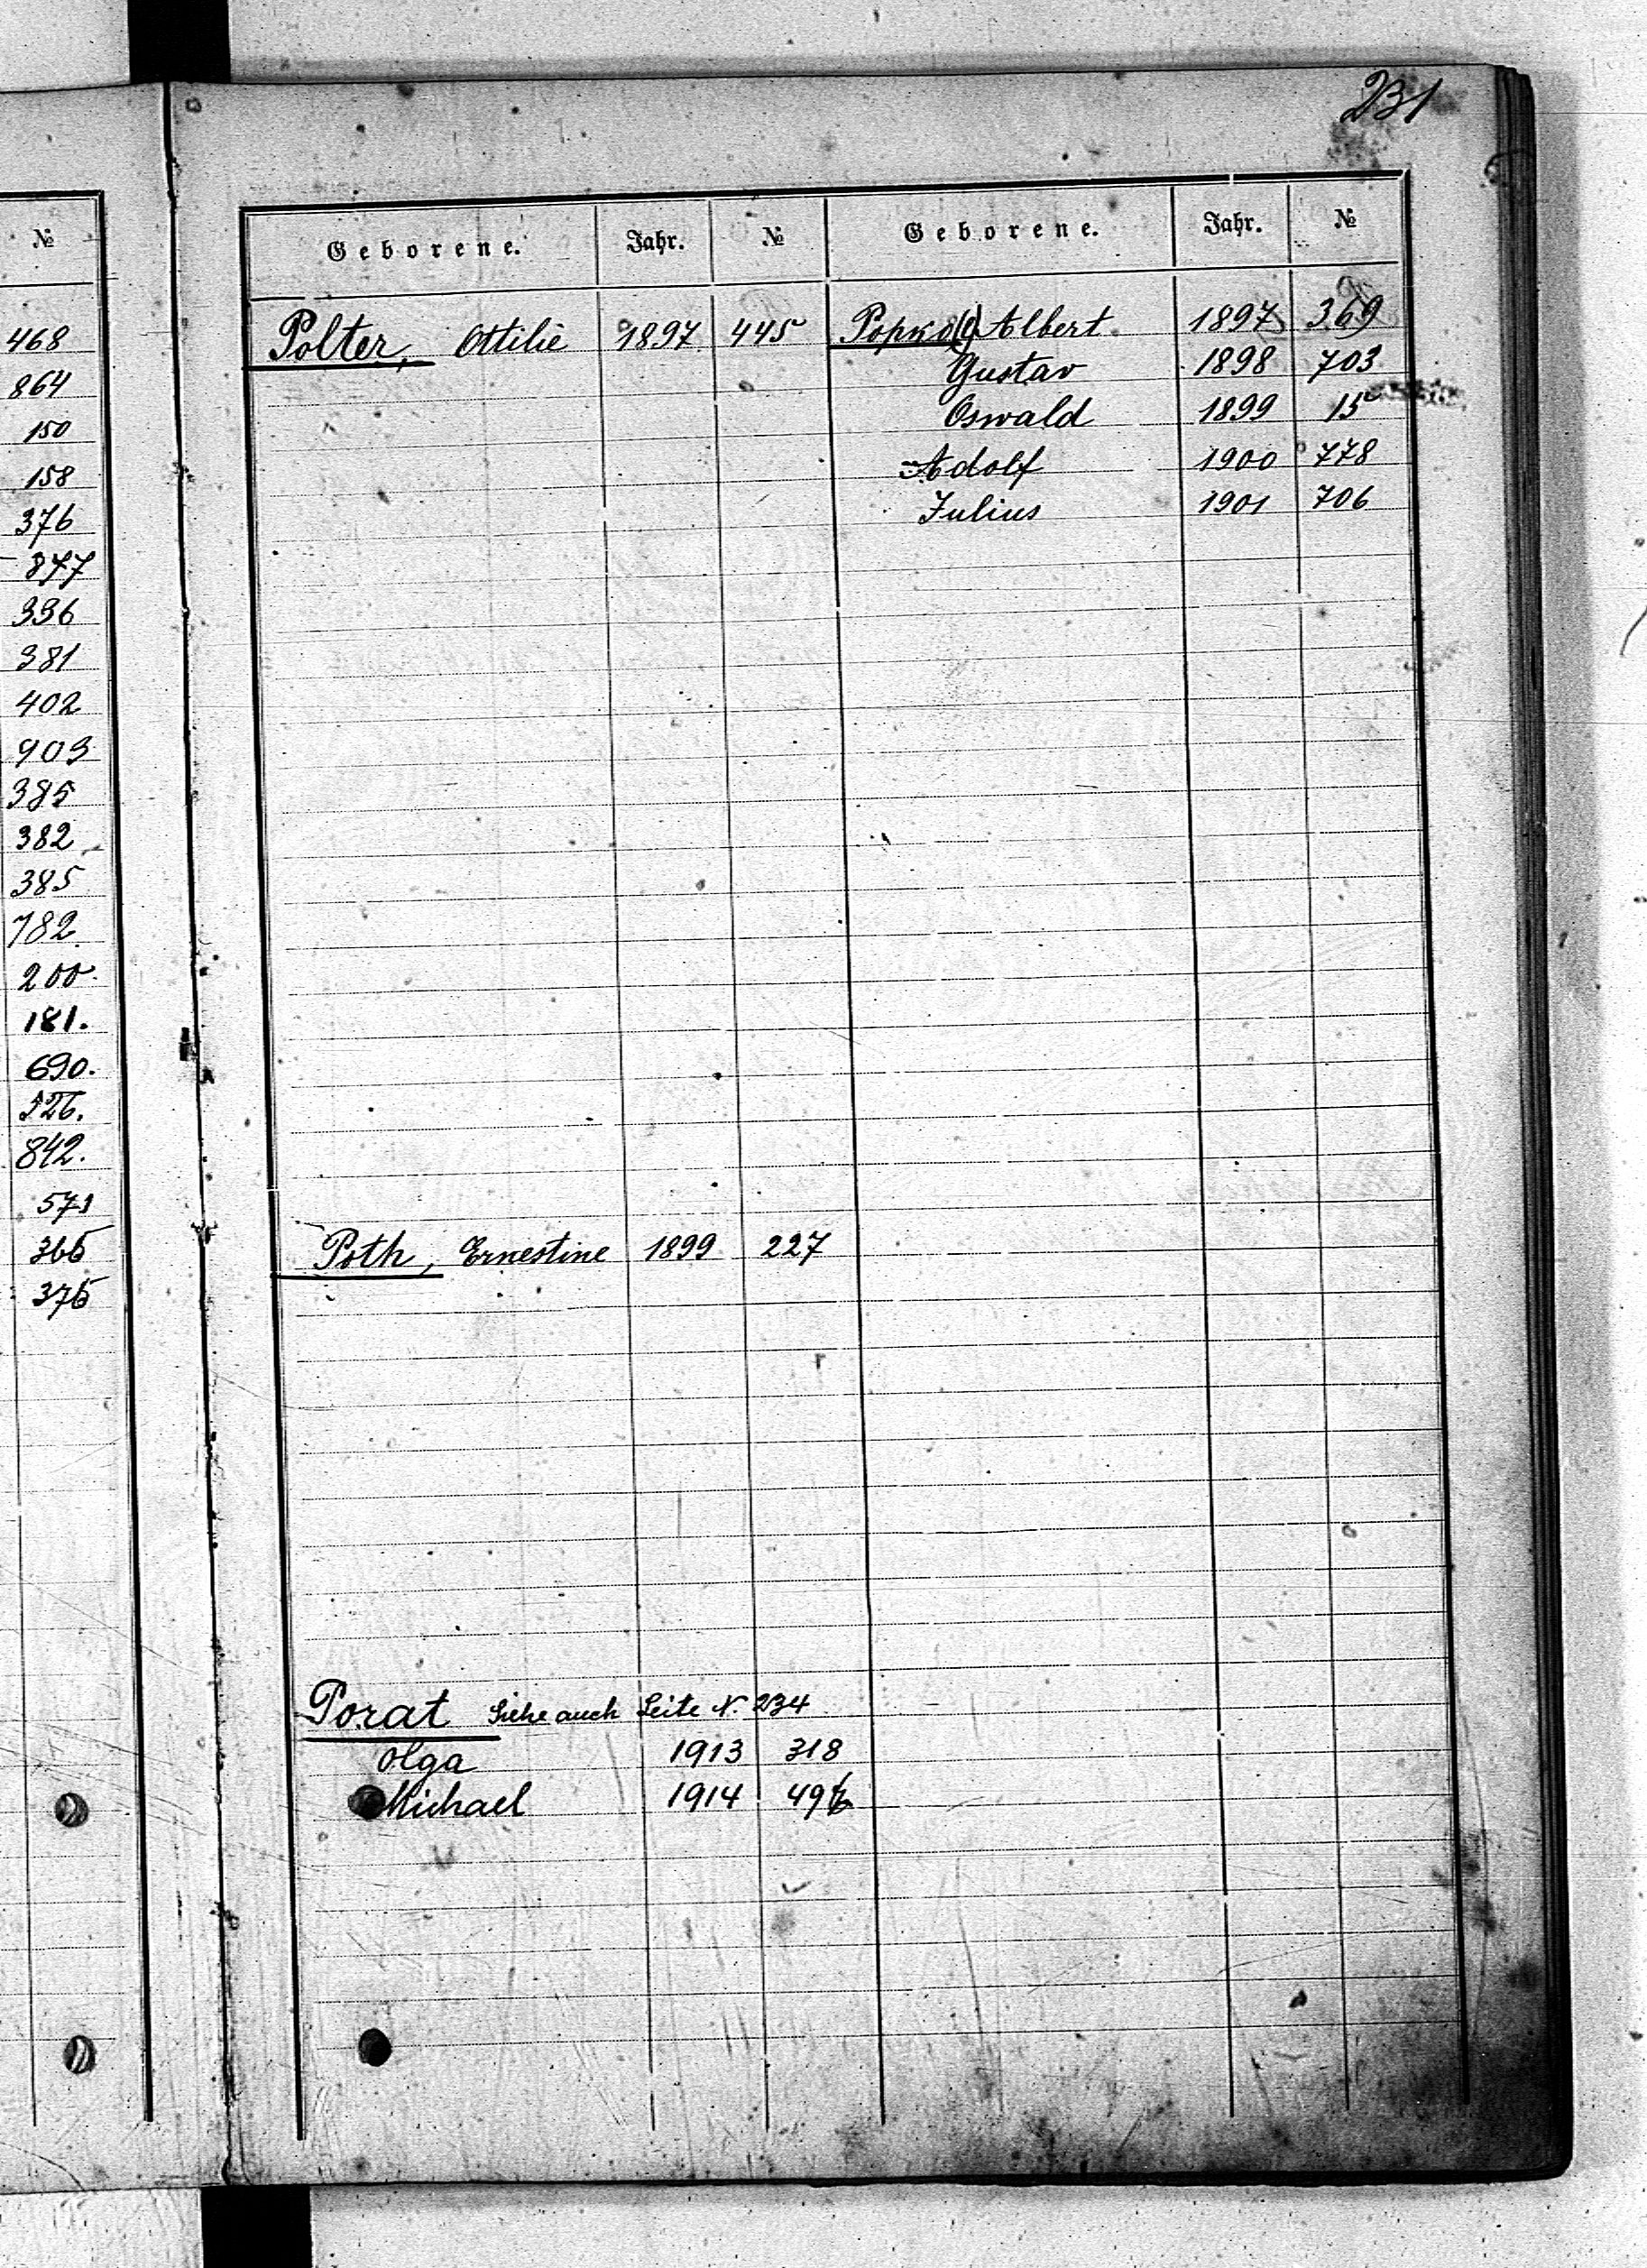 231
№
468
864
150
158
376
877
336
381
402
903
385
382
385
782.
200.
181.
690.
842.
571
366
Geborene. Jahr. № Geborene. Jahr. №
Polter, Ottilie 1897 445 Popko(l) Albert 1897 369
Gustav 1898 703
Oswald 1899 15
Adolf 1900 778
Julius 1901 706
Poth, Ernestine 1899 227
Porat Siehe auch Seite N. 234
Olga 1913 318
Michael 1914 496